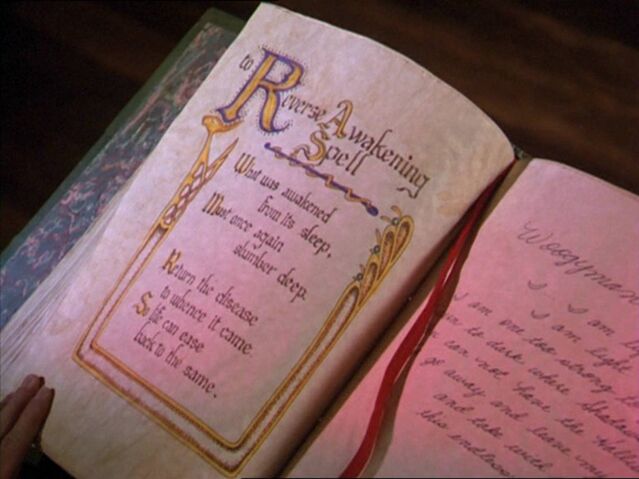 to Reverse Awakening
Spell
What was awakened
from its sleep,
Must once again
slumber deep.
Return the disease
to whence it came.
So life can ease
back to the same.
Woogyman
I am
I am light
I am one too strong
in to dark where shadow
can not have the Halli
go away and leave
and take with
this endless